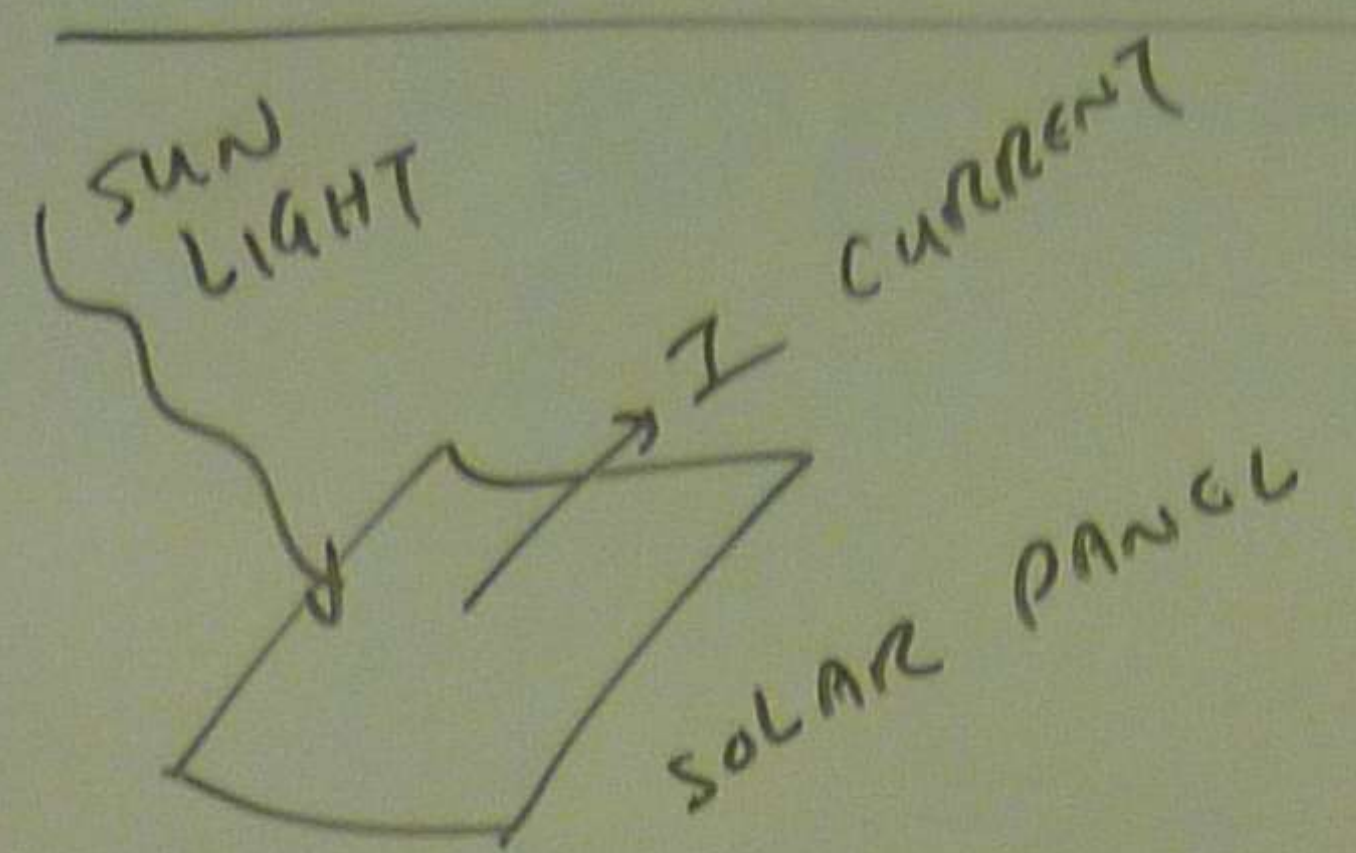 SUN
LIGHT
I CURRENT
SOLAR PANEL